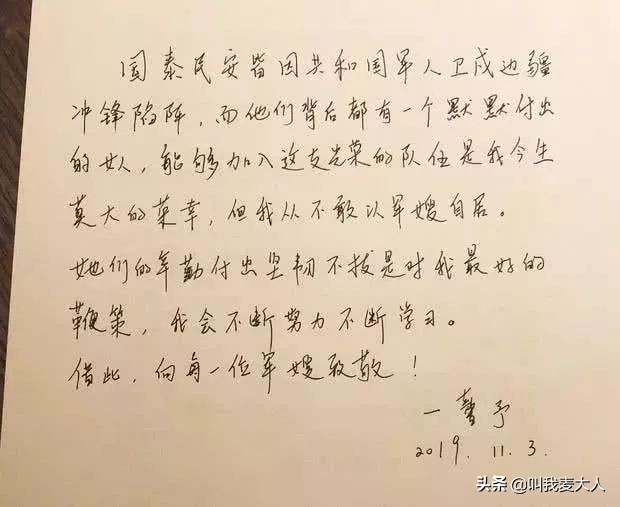 国泰民安皆因共和国军人卫戍边疆
冲锋陷阵，而他们背后都有一个默默付出
的女人，能够加入这支光荣的队伍是我今生
莫大的荣幸，但我从不敢以军嫂自居。
她们的辛勤付出坚韧不拔是对我最好的
鞭策，我会不断努力不断学习。
借此，向每一位军嫂致敬！
一 馨予
2019. 11. 3.
头条 @叫我麦大人